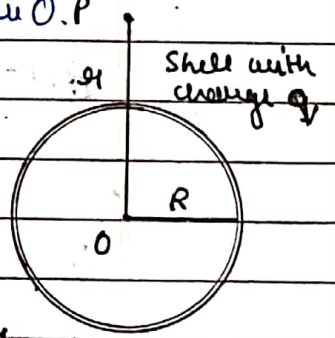 O. P
r
Shell with
charge q
R
O